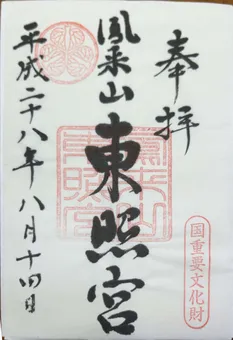 奉拝
鳳来山
東照宮
平成二十八年八月十四日
国重要文化財